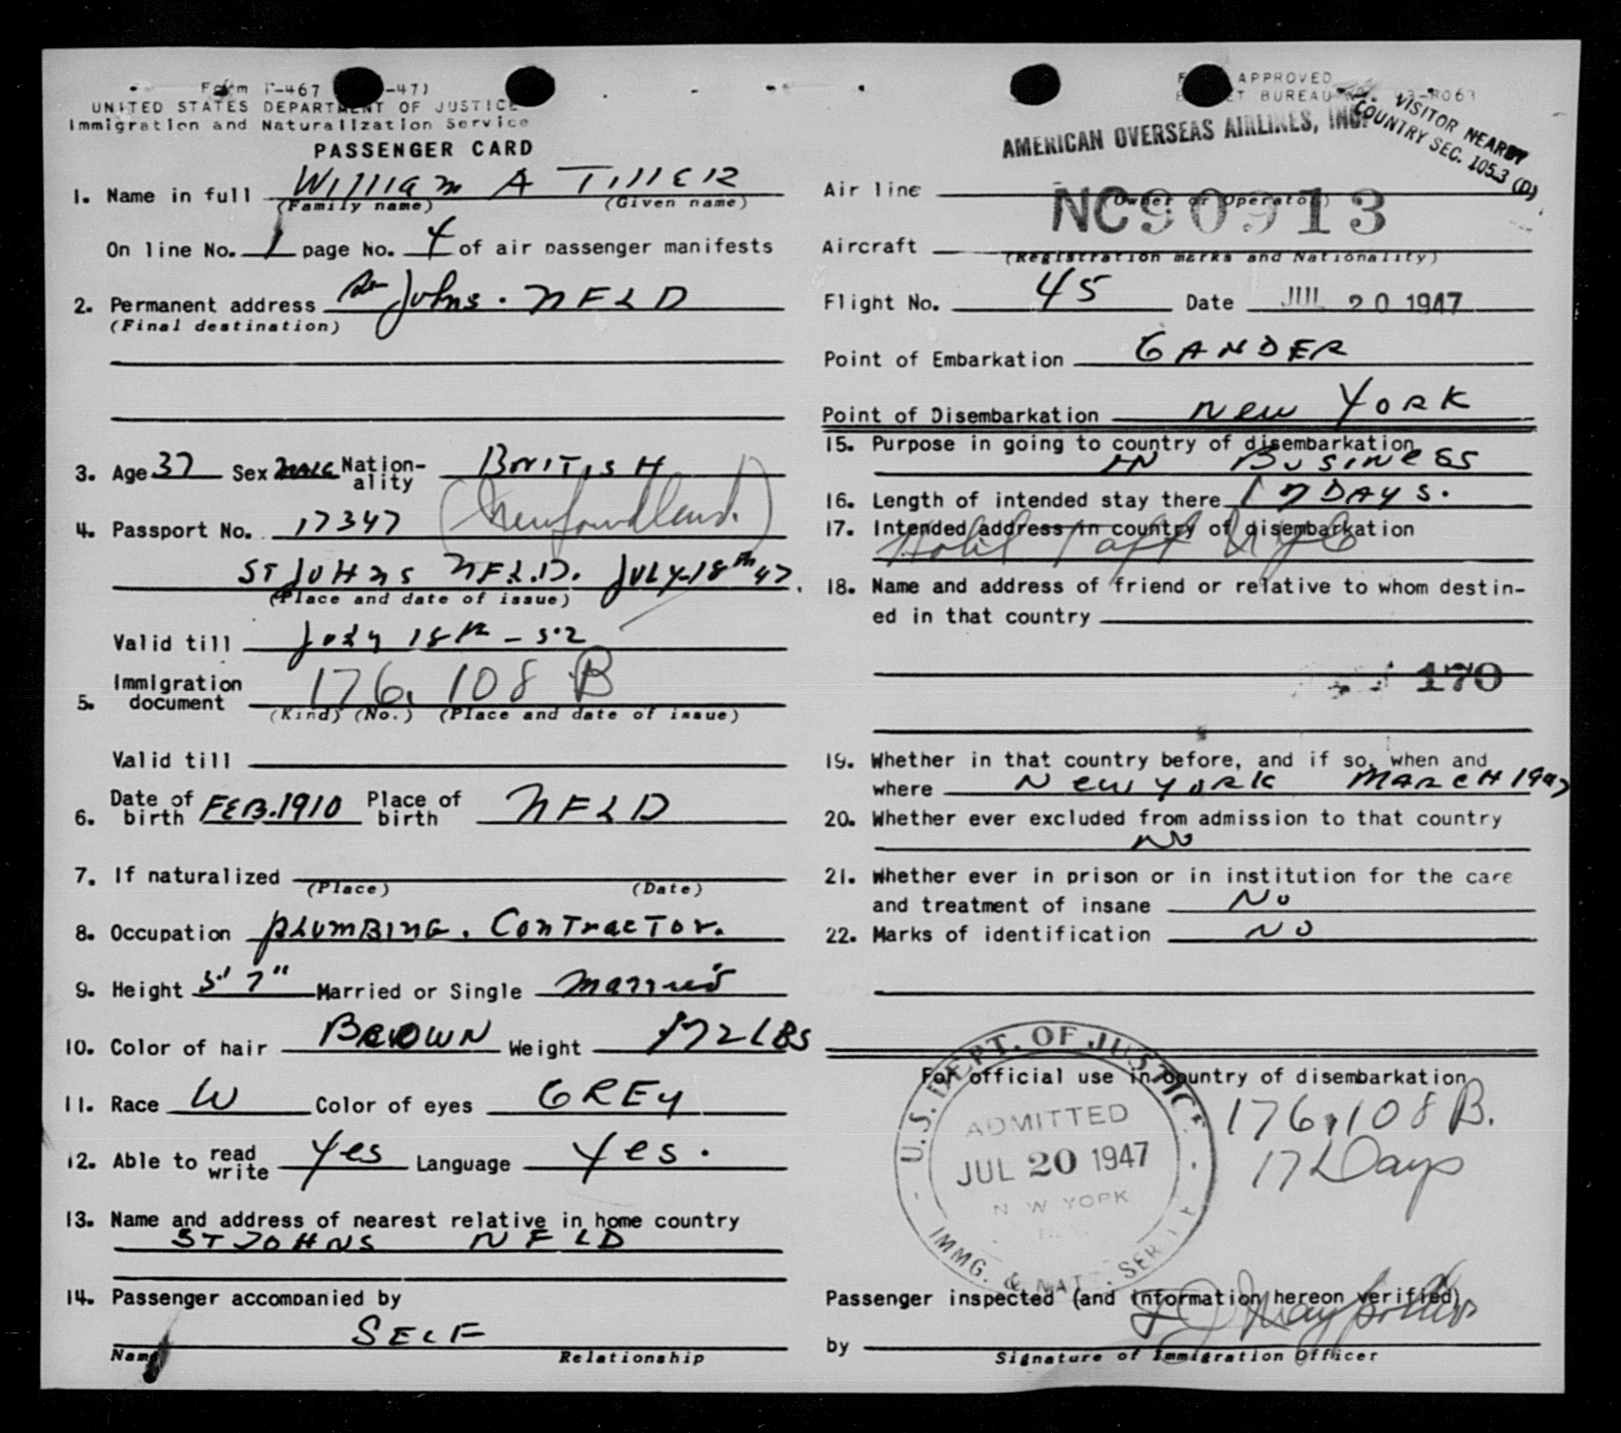 Form I-467 -47)
UNITED STATES DEPARTMENT OF JUSTICE
Immigration and Naturalization Service
PASSENGER CARD
1. Name in full William A Tiller
(Family name) (Given name)
On line No. 1 page No. 4 of air passenger manifests
2. Permanent address St Johns. NFLD
(Final destination)
3. Age 37 Sex Male Nation-ality British
(Newfoundland.)
4. Passport No. 17347
ST JOHNS NFLD. JULY-18th 47.
(Place and date of issue)
Valid till July 18th - 52
5. Immigration document 176,108 B
(Kind) (No.) (Place and date of issue)
Valid till
6. Date of birth FEB. 1910 Place of birth NFLD
7. If naturalized
(Place) (Date)
8. Occupation PLUMBING. ConTracTor.
9. Height 5' 7" Married or Single Married
10. Color of hair BROWN Weight 172 LBS
11. Race W Color of eyes GREY
12. Able to read write Yes Language Yes.
13. Name and address of nearest relative in home country
ST JOHNS NFLD
14. Passenger accompanied by
SELF
Name Relationship
APPROVED
BUREAU
VISITOR NEARBY
COUNTRY SEC. 105.3 (D)
AMERICAN OVERSEAS AIRLINES, INC.
Air line
(Owner or Operator)
NC90913
Aircraft
(Registration marks and Nationality)
Flight No. 45 Date JUL 20 1947
Point of Embarkation GANDER
Point of Disembarkation New YORK
15. Purpose in going to country of disembarkation
BUSINESS
16. Length of intended stay there 17 DAYS.
17. Intended address in country of disembarkation
Hotel Taft NYC
18. Name and address of friend or relative to whom destin-
ed in that country
170
19. Whether in that country before, and if so, when and
where New YORK MARCH 1947
20. Whether ever excluded from admission to that country
NO
21. Whether ever in prison or in institution for the care
and treatment of insane No
22. Marks of identification NO
For official use in country of disembarkation
U.S. DEPT. OF JUSTICE
ADMITTED
JUL 20 1947
NEW YORK
IMMG. & NAT. SERV.
176,108 B.
17 Days
Passenger inspected (and information hereon verified)
by
Signature of Immigration Officer